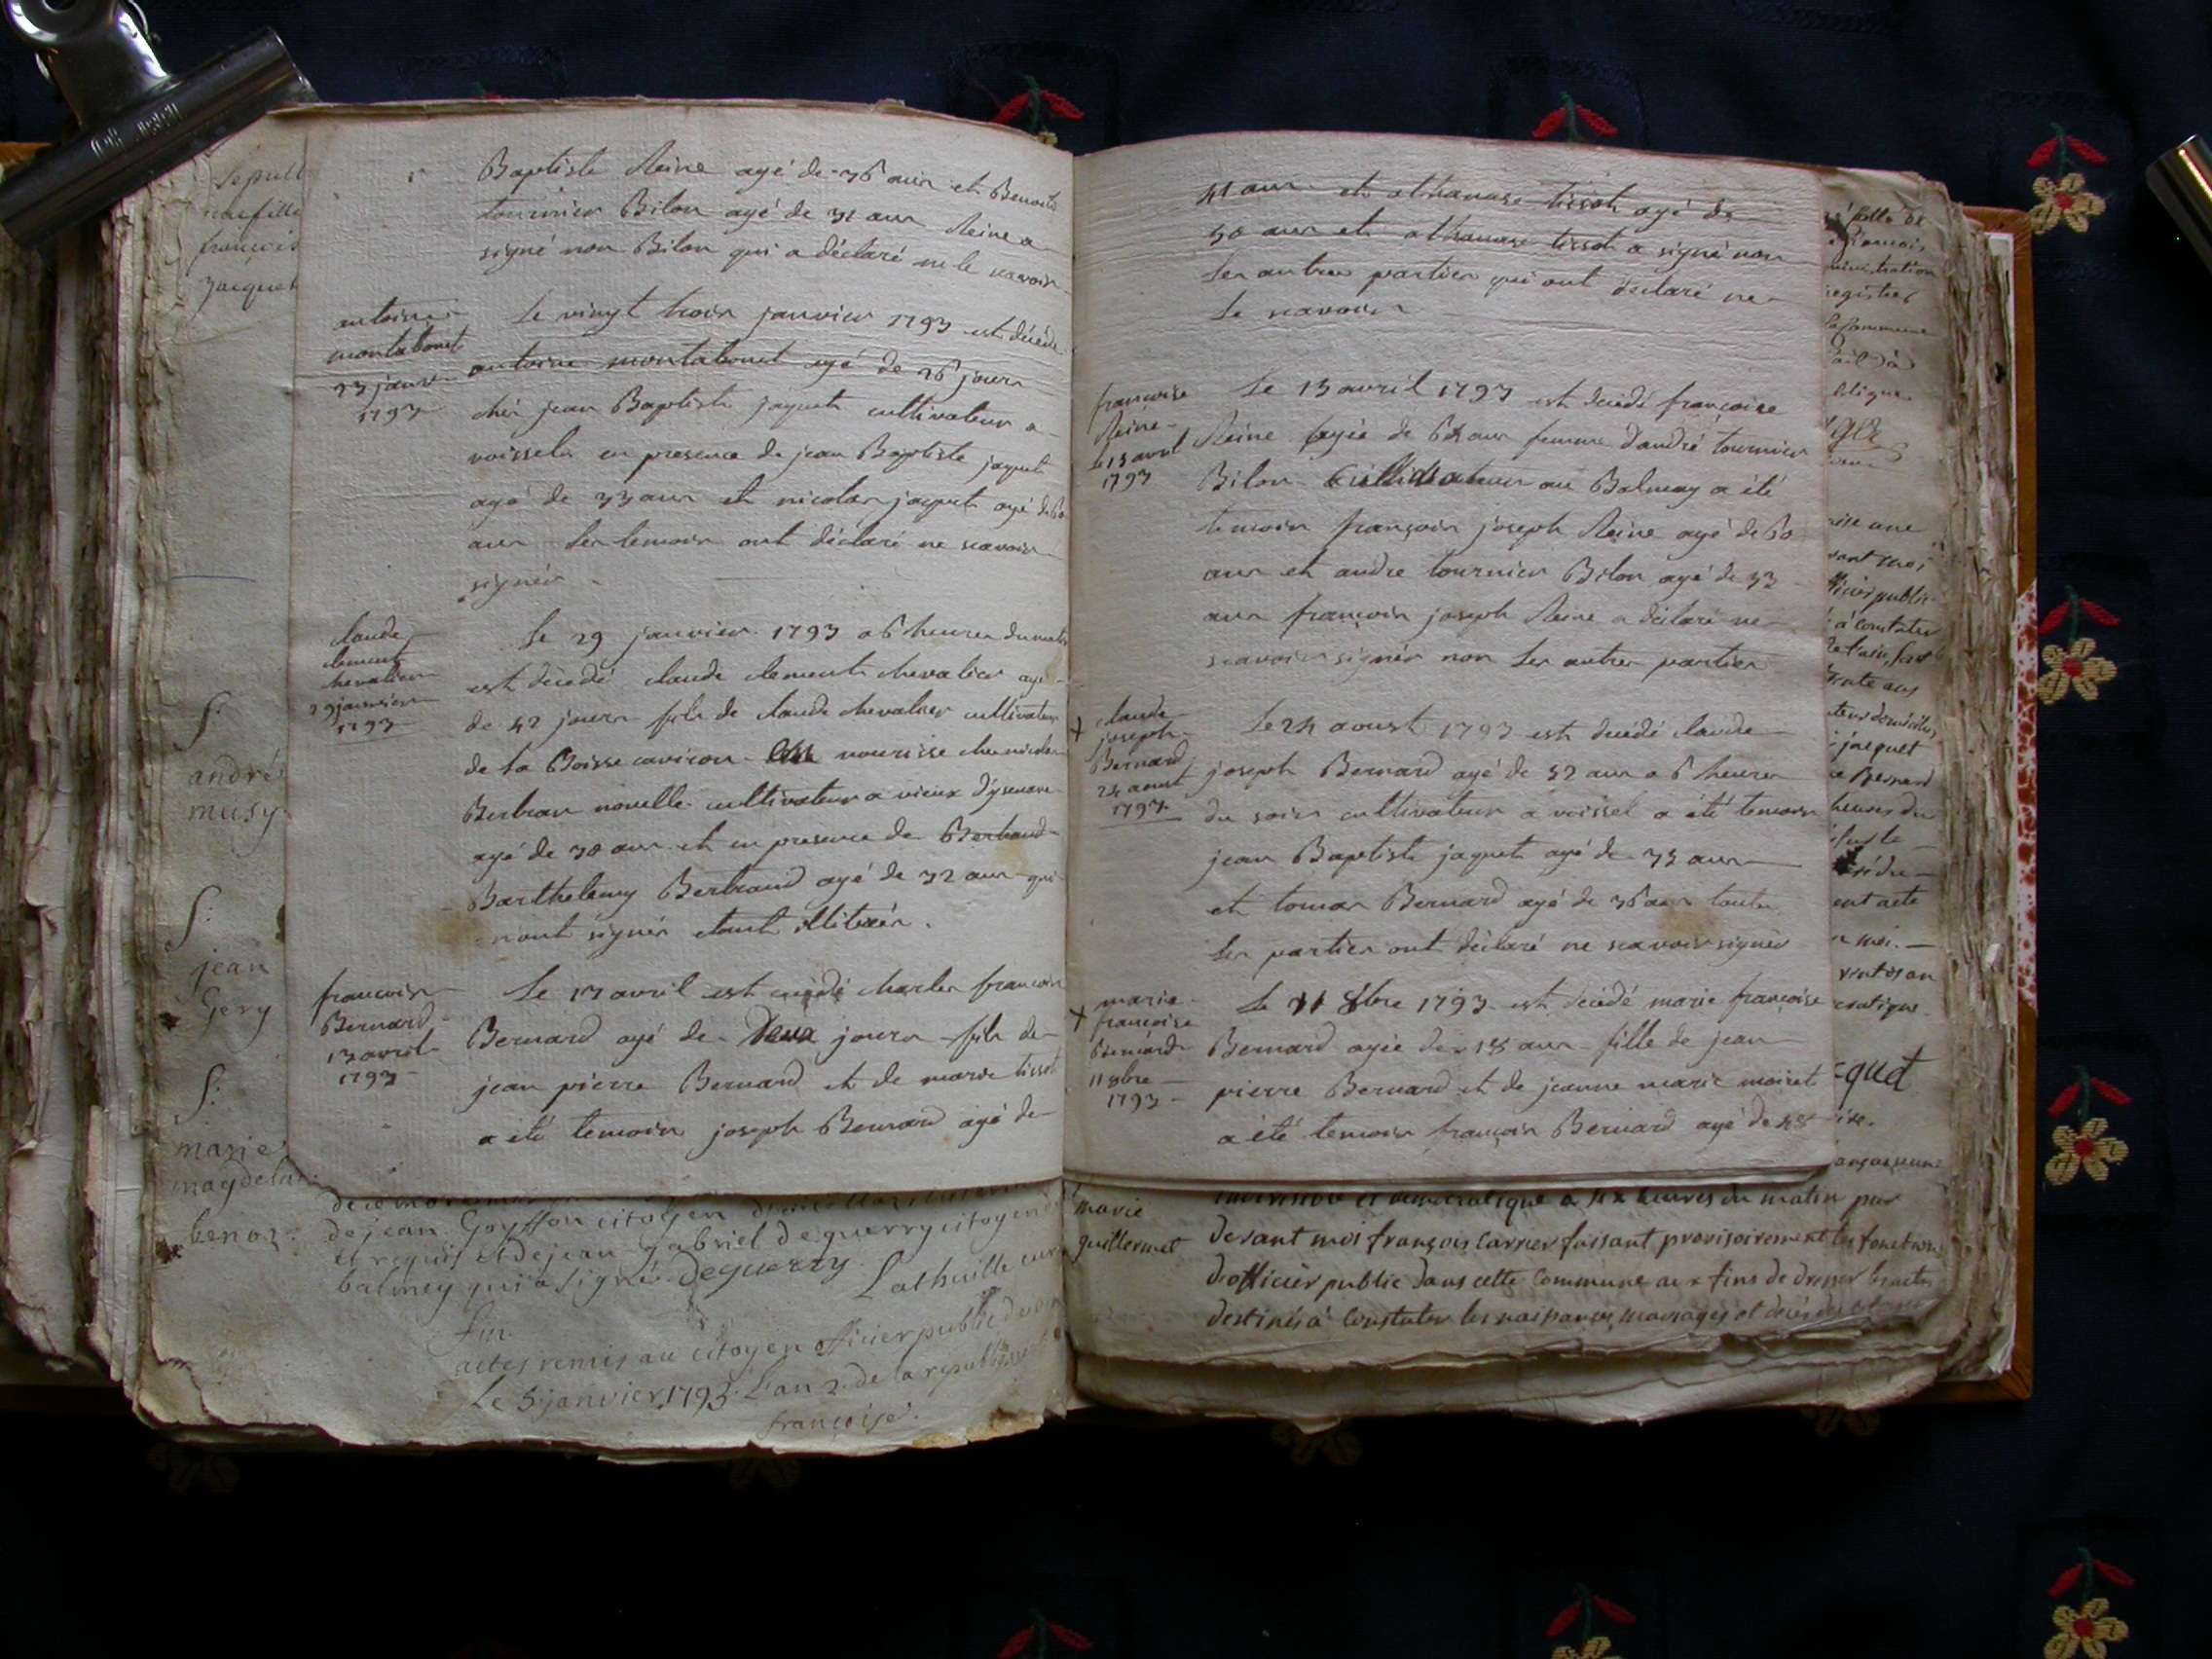 Sepult
françois
Jacquet
Baptiste Reine agé de 36 ans et Benoit
tournier Bilon agé de 31 ans Reine a
signé non Bilon qui a déclaré ne le scavoir
antoine
montabonet
23 janv
1793
Le vingt trois janvier 1793 est décédé
antoine montabonet agé de 26 jours
chés jean Baptiste jaquet cultivateur a
voissela en presence de jean Baptiste jaquet
agé de 33 ans et nicolas jaquet agé de 60
ans les temoins ont déclaré ne scavoir
signér
claude
clement
chevalier
29 janvier
1793
Le 29 janvier 1793 a 6 heures du matin
est décédé claude clement chevalier agé
de 42 jours fils de claude chevalier cultivateur
de la Boisse nourisse ches nicolas
cultivateur a vieux
agé de 30 ans et en presence de Bertrand
Barthelemy Bertrand agé de 32 ans qui
nont signér etant illiterér.
francois
Bernard
13 avril
1793
Le 13 avril est décédé charles francois
Bernard agé de Deux jours fils de
jean pierre Bernard et de marie tissot
a été temoins joseph Bernard agé de
f:
andré
musy
f:
jean
Gery
f:
marie
magdelai
benoz
de jean Goyffon citoyen
et requis et de jean gabriel deguerry citoyen
balmey qui a signé. Deguerry.
Lathuille curé
fin
actes remis au citoyen officier public
Le 5 janvier 1793 L'an 2 de la republique
françoise.
41 ans et athanase tissot agé de
50 ans et athanase tissot a signé non
les autres parties qui ont déclaré ne
le scavoir
francoise
Reine
le 13 avril
1793
Le 13 avril 1793 est décédé françoise
Reine agée de 64 ans femme d'andré tournier
Bilon Cultivateur au Balmay a été
temoin françois joseph Reine agé de 60
ans et andre tournier Bilon agé de 53
ans françois joseph Reine a déclaré ne
scavoir signér non les autres parties
+ claude
joseph
Bernard
24 aoust
1793
Le 24 aoust 1793 est décédé claude
joseph Bernard agé de 52 ans a 6 heures
du soir cultivateur a voissel a été temoins
jean Baptiste jaquet agé de 35 ans
et tomas Bernard agé de 36 ans toutes
les parties ont déclaré ne scavoir signér
+ marie
françoise
Bernard
11 8bre
1793
Le 11 8bre 1793 est décédé marie françoise
Bernard agée de 18 ans fille de jean
pierre Bernard et de jeanne marie moiret
a été temoin françois Bernard agé de 48
marie
guillermet
indivisible et democratique a six heures du matin par
devant moi françois Carrier faisant provisoirement les fonctions
d'officier public dans cette Commune aux fins de dresser les actes
destinés à Constater les naissances, mariages et décés des
fille de
françois
registres
la Commune
blique
rise une
vant moi
fficier public
à Constater
jacquet
Bernard
heures du
ent acte
n moi.
cratique
cquet